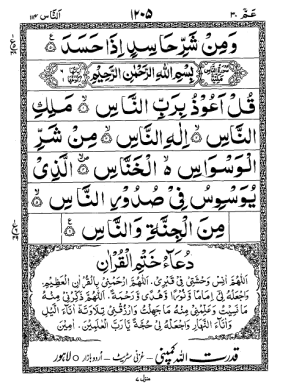 النَّاس ١١٤
١٢٠٥
عَمَّ ٣٠
وَمِنْ شَرِّ حَاسِدٍ إِذَا حَسَدَ
بِسْمِ اللهِ الرَّحْمٰنِ الرَّحِيْمِ
قُلْ اَعُوْذُ بِرَبِّ النَّاسِ ۙ مَلِكِ
النَّاسِ ۙ اِلٰهِ النَّاسِ ۙ مِنْ شَرِّ
الْوَسْوَاسِ ەۙ الْخَنَّاسِ ۙ الَّذِيْ
يُوَسْوِسُ فِيْ صُدُوْرِ النَّاسِ ۙ
مِنَ الْجِنَّةِ وَالنَّاسِ
دُعَاءُ خَتْمِ الْقُرْاٰنِ
اَللّٰهُمَّ اٰنِسْ وَحْشَتِيْ فِيْ قَبْرِيْ، اَللّٰهُمَّ ارْحَمْنِيْ بِالْقُرْاٰنِ الْعَظِيْمِ
وَاجْعَلْهُ لِيْ اِمَامًا وَّنُوْرًا وَّهُدًى وَّرَحْمَةً، اَللّٰهُمَّ ذَكِّرْنِيْ مِنْهُ
مَا نَسِيْتُ وَعَلِّمْنِيْ مِنْهُ مَا جَهِلْتُ وَارْزُقْنِيْ تِلَاوَتَهٗ اٰنَاءَ الَّيْلِ
وَاٰنَاءَ النَّهَارِ وَاجْعَلْهُ لِيْ حُجَّةً يَّا رَبَّ الْعٰلَمِيْنَ، اٰمِيْن
قدرت اللہ کمپنی - غزنی سٹریٹ - اردو بازار ○ لاہور
منزل ۷